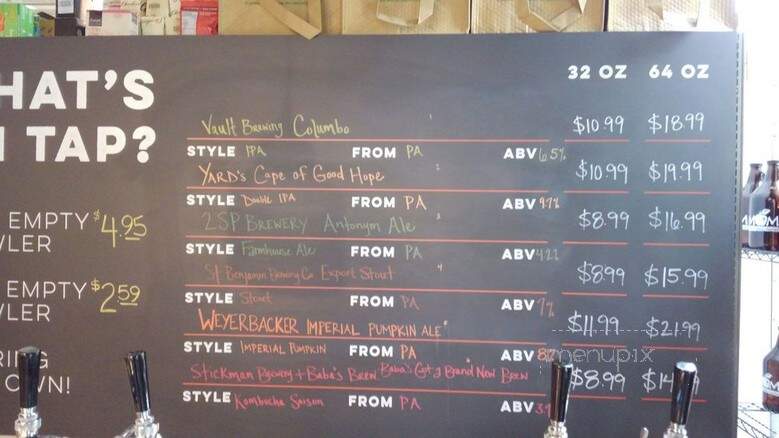 HAT'S
TAP?
32 OZ 64 OZ
Vault Brewing Columbo $10.99 $18.99
STYLE IPA FROM PA ABV 6.5%
YARD's Cape of Good Hope $10.99 $19.99
STYLE Double IPA FROM PA ABV 9.7%
2SP BREWERY Antonym Ale $8.99 $16.99
STYLE Farmhouse Ale FROM PA ABV
St Benjamin Brewing Co Export Stout $8.99 $15.99
STYLE Stout FROM PA ABV 7%
WEYERBACKER IMPERIAL PUMPKIN ALE $11.99 $21.99
STYLE IMPERIAL PUMPKIN FROM PA ABV
Stickman Brewery + Baba's Brew Baba's Got a Brand New Brew $8.99
STYLE Kombucha Saison FROM PA ABV
EMPTY $4.95
WLER
EMPTY $2.59
WLER
RING
OWN!
menupix